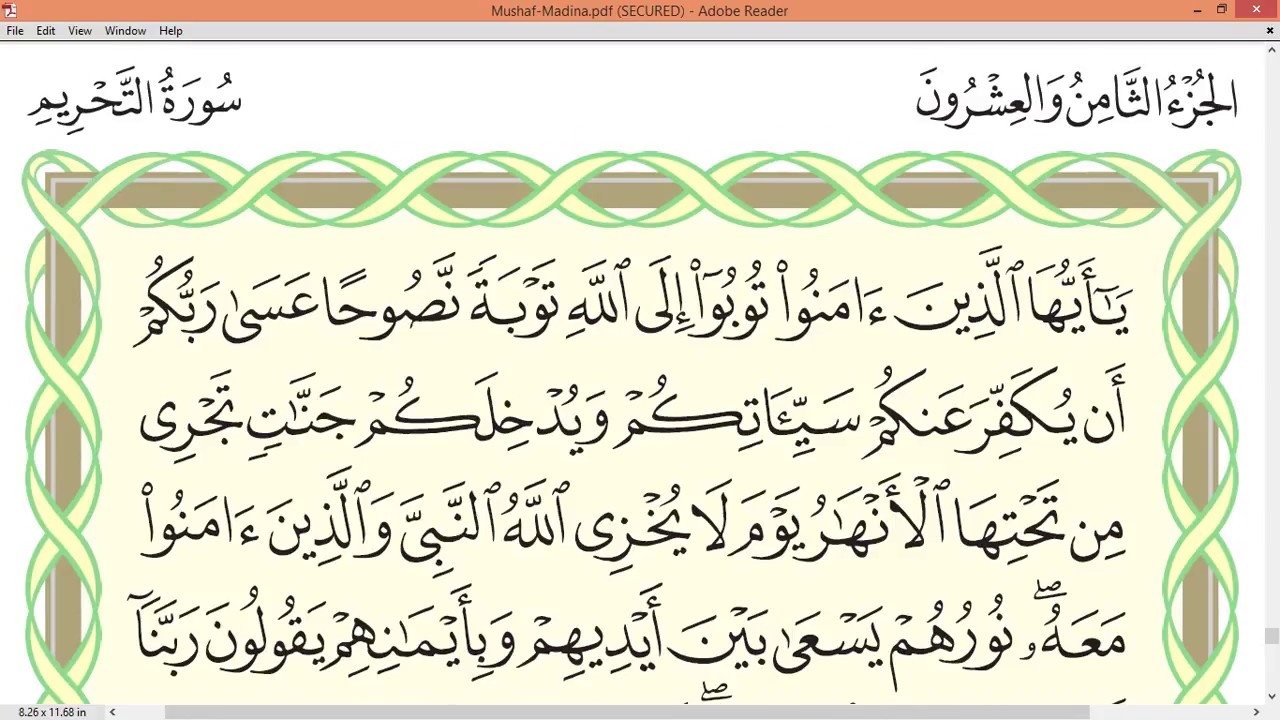 Mushaf-Madina.pdf (SECURED) - Adobe Reader
File Edit View Window Help
الجُزْءُ الثَّامِنُ وَالعِشْرُونَ سُورَةُ التَّحْرِيمِ
يَـٰٓأَيُّهَا ٱلَّذِينَ ءَامَنُوا۟ تُوبُوٓا۟ إِلَى ٱللَّهِ تَوْبَةً نَّصُوحًا عَسَىٰ رَبُّكُمْ
أَن يُكَفِّرَ عَنكُمْ سَيِّـَٔاتِكُمْ وَيُدْخِلَكُمْ جَنَّـٰتٍ تَجْرِى
مِن تَحْتِهَا ٱلْأَنْهَـٰرُ يَوْمَ لَا يُخْزِى ٱللَّهُ ٱلنَّبِىَّ وَٱلَّذِينَ ءَامَنُوا۟
مَعَهُۥ ۖ نُورُهُمْ يَسْعَىٰ بَيْنَ أَيْدِيهِمْ وَبِأَيْمَـٰنِهِمْ يَقُولُونَ رَبَّنَآ
8.26 x 11.68 in